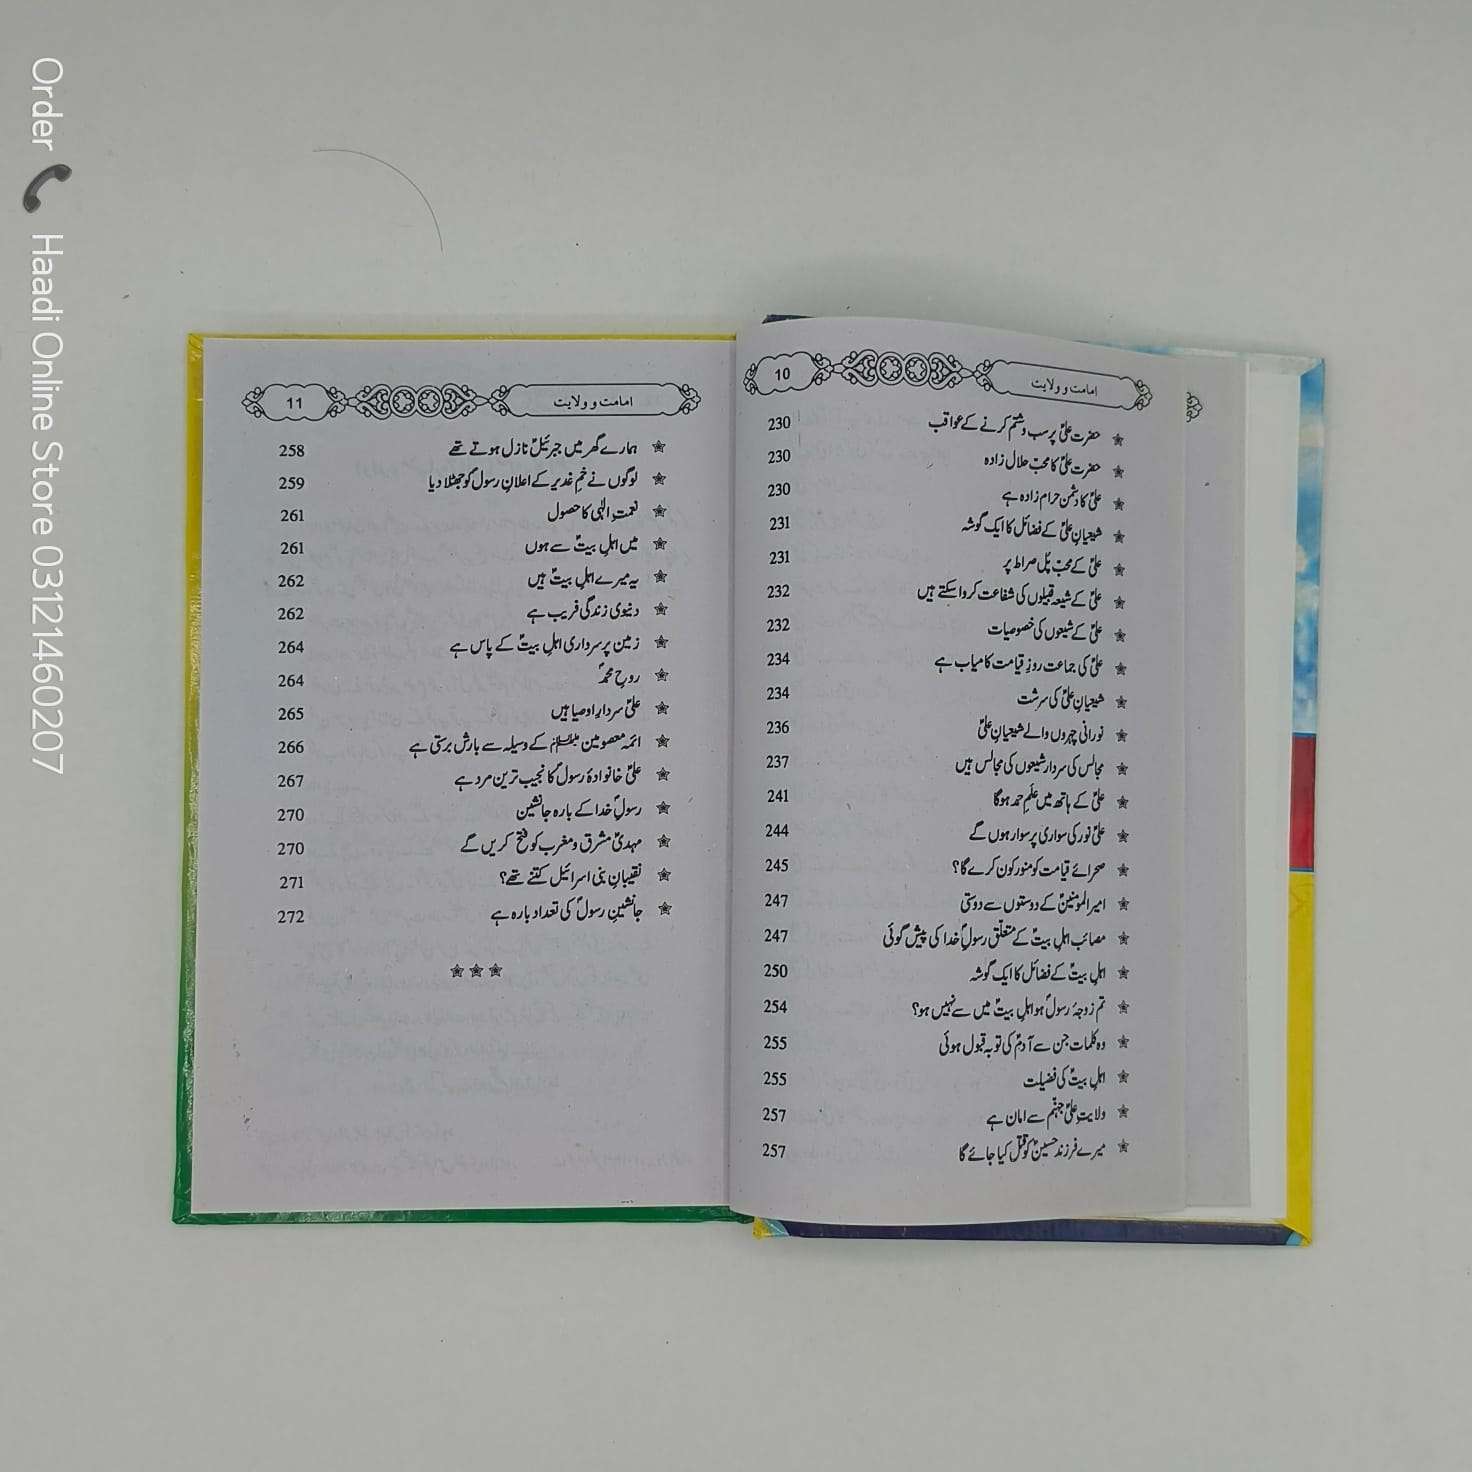 Order 📞 Haadi Online Store 03121460207
امامت و ولایت 10
حضرت علیؑ پر سب و شتم کرنے کے عواقب 230
حضرت علیؑ کا محبّ حلال زادہ 230
علیؑ کا دشمن حرام زادہ ہے 230
شیعیانِ علیؑ کے فضائل کا ایک گوشہ 231
علیؑ کے محبّ پُل صراط پر 231
علیؑ کے شیعہ قبیلوں کی شفاعت کروا سکتے ہیں 232
علیؑ کے شیعوں کی خصوصیات 232
علیؑ کی جماعت روزِ قیامت کامیاب ہے 234
شیعیانِ علیؑ کی سرشت 234
نورانی چہروں والے شیعیانِ علیؑ 236
مجالس کی سردار شیعوں کی مجالس ہیں 237
علیؑ کے ہاتھ میں عَلَمِ حمد ہوگا 241
علیؑ نور کی سواری پر سوار ہوں گے 244
صحرائے قیامت کو منور کون کرے گا؟ 245
امیرالمومنینؑ کے دوستوں سے دوستی 247
مصائب اہلِ بیتؑ کے متعلّق رسولِؐ خدا کی پیش گوئی 247
اہلِ بیتؑ کے فضائل کا ایک گوشہ 250
تم زوجۂ رسولؐ ہو اہلِ بیتؑ میں سے نہیں ہو؟ 254
وہ کلمات جن سے آدمؑ کی توبہ قبول ہوئی 255
اہلِ بیتؑ کی فضیلت 255
ولایتِ علیؑ جہنّم سے امان ہے 257
میرے فرزند حسینؑ کو قتل کیا جائے گا 257
امامت و ولایت 11
ہمارے گھر میں جبرئیلؑ نازل ہوتے تھے 258
لوگوں نے خمِ غدیر کے اعلانِ رسولؐ کو جھٹلا دیا 259
نعمتِ الٰہی کا حصول 261
میں اہلِ بیتؑ سے ہوں 261
یہ میرے اہلِ بیتؑ ہیں 262
دنیوی زندگی فریب ہے 262
زمین پر سرداری اہلِ بیتؑ کے پاس ہے 264
روحِ محمدؐ 264
علیؑ سردارِ اوصیا ہیں 265
ائمہ معصومین علیہم السلام کے وسیلہ سے بارش برستی ہے 266
علیؑ خانوادۂ رسولؐ کا نجیب ترین مرد ہے 267
رسولِؐ خدا کے بارہ جانشین 270
مہدیؑ مشرق و مغرب کو فتح کریں گے 270
نقیبانِ بنی اسرائیل کتنے تھے؟ 271
جانشینِ رسولؐ کی تعداد بارہ ہے 272